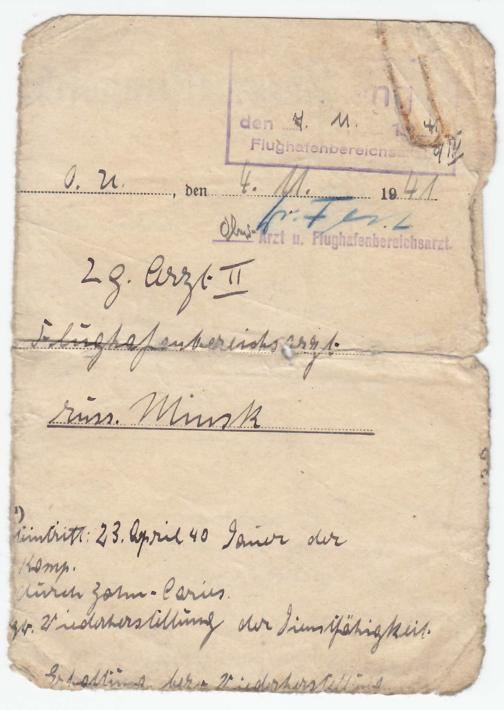 den 4. 11.
Flughafenbereichs
O. U., den 4. 11. 1941
Ober-Arzt u. Flughafenbereichsarzt.
Lg. Arzt II
Flughafenbereichsarzt
russ. Minsk
eintritt: 23. April 40 Jauer der
Komp.
durch Zahn-Caries.
zw. Wiederherstellung der Dienstfähigkeit.
Erhaltung bezw. Wiederherstellung